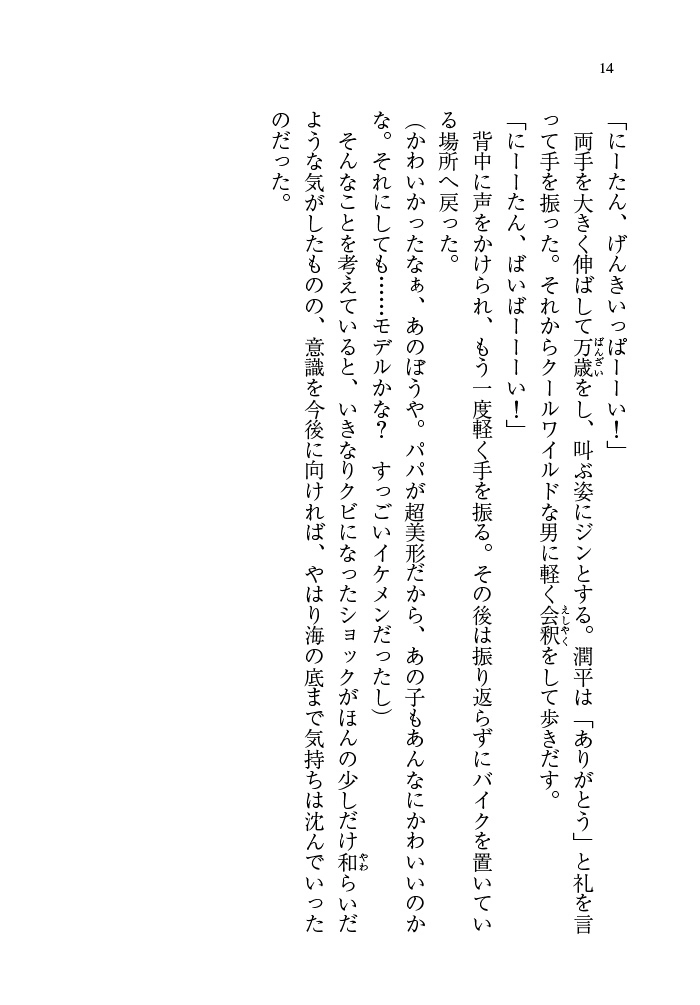 14
「にーたん、げんきいっぱーーい！」
　両手を大きく伸ばして万歳をし、叫ぶ姿にジンとする。潤平は「ありがとう」と礼を言
って手を振った。それからクールワイルドな男に軽く会釈をして歩きだす。
「にーーたん、ばいばーーーい！」
　背中に声をかけられ、もう一度軽く手を振る。その後は振り返らずにバイクを置いてい
る場所へ戻った。
（かわいかったなぁ、あのぼうや。パパが超美形だから、あの子もあんなにかわいいのか
な。それにしても……モデルかな？　すっごいイケメンだったし）
　そんなことを考えていると、いきなりクビになったショックがほんの少しだけ和らいだ
ような気がしたものの、意識を今後に向ければ、やはり海の底まで気持ちは沈んでいった
のだった。
ばんざい
えしやく
やわ